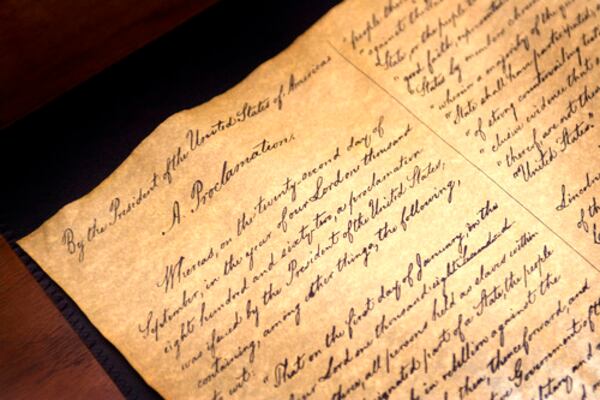 By the President of the United States of America:
A Proclamation.
Whereas, on the twenty-second day of
September, in the year of our Lord one thousand
eight hundred and sixty two, a proclamation
was issued by the President of the United States,
containing, among other things, the following,
to wit:
"That on the first day of January, in the
our Lord one thousand eight hundred
three, all persons held as slaves within
designated part of a State, the people
be in rebellion against the
then, thenceforward, and
Government of the
military and
"people
"against the
State or the people
"good faith, represented
"States by members chosen
"wherein a majority of the
"State shall have participated
"of strong countervailing
"clusive evidence that
"thereof, are not then
"United States."
Lincoln
of the